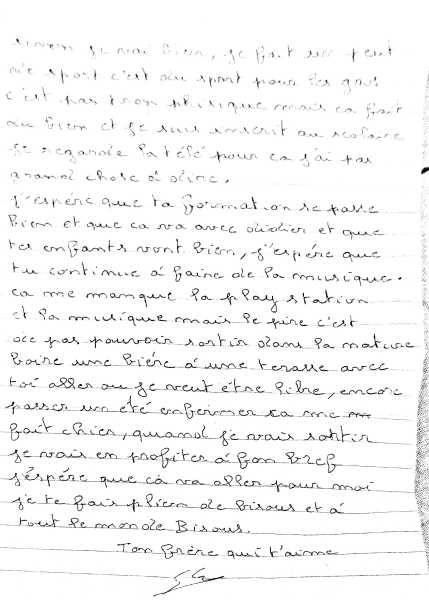 sinon je suis bien, je fait un peut
de sport c'est du sport pour les gas
c'est pas trop phisique mais ca fait
du bien et je suis inscrit au scolaire
je regarde la télé pour ca j'ai pas
grand chose à dire.
j'espère que ta formation se passe
bien et que ca va avec didier et que
tes enfants vont bien, j'espère que
tu continue à faire de la musique.
ca me manque la play station
et la musique mais le pire c'est
de pas pouvoir sortir dans la nature
boire une bière à une terasse avec
toi aller ou je veut être libre, encore
passer un été enfermer ca me
fait chier, quand je vais sortir
je vais en profiter à fon bref
j'éspére que ca va aller pour moi
je te fais plien de bisous et à
tout le monde Bisous.
Ton frère qui t'aime